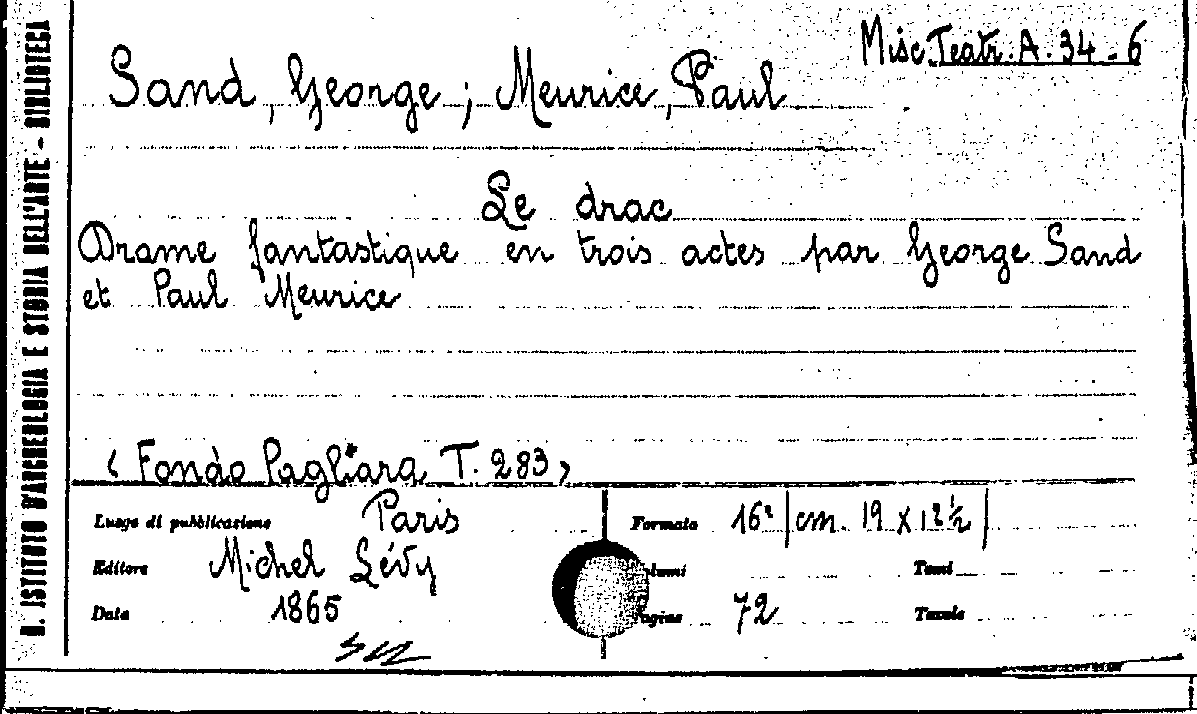 Misc. Teatr. A. 34 - 6
Sand, George; Meurice, Paul
Le drac
Drame fantastique en trois actes par George Sand
et Paul Meurice
< Fondo Pagliara T. 283 >
Luogo di pubblicazione Paris
Formato 16° cm. 19 x 12 ½
Editore Michel Lévy
Tomi
Data 1865
Pagine 72
Tavole
R. ISTITUTO D'ARCHEOLOGIA E STORIA DELL'ARTE - BIBLIOTECA